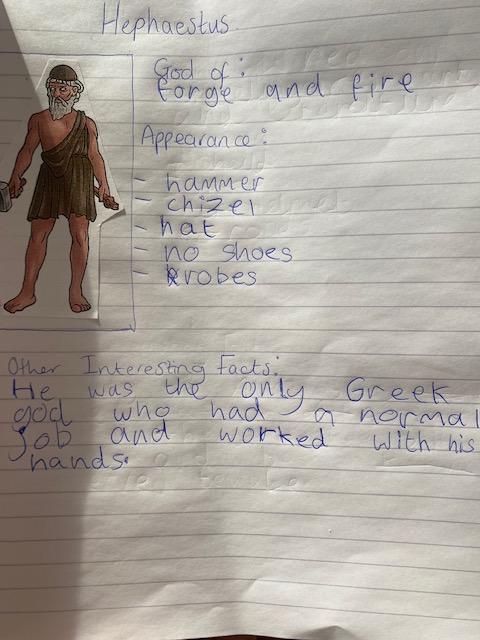 Hephaestus
God of:
forge and fire
Appearance:
- hammer
- chizel
- hat
- no shoes
- robes
Other Interesting Facts:
He was the only Greek
god who had a normal
job and worked with his
hands.